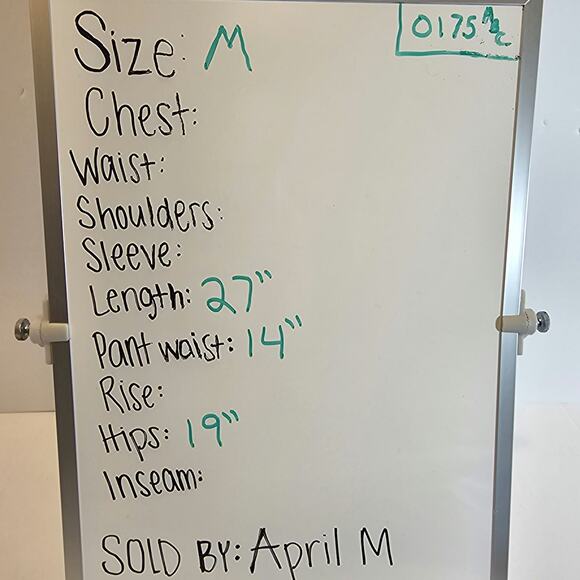 Size: M
0175 ABC
Chest:
Waist:
Shoulders:
Sleeve:
Length: 27"
Pant waist: 14"
Rise:
Hips: 19"
Inseam:
SOLD BY: April M